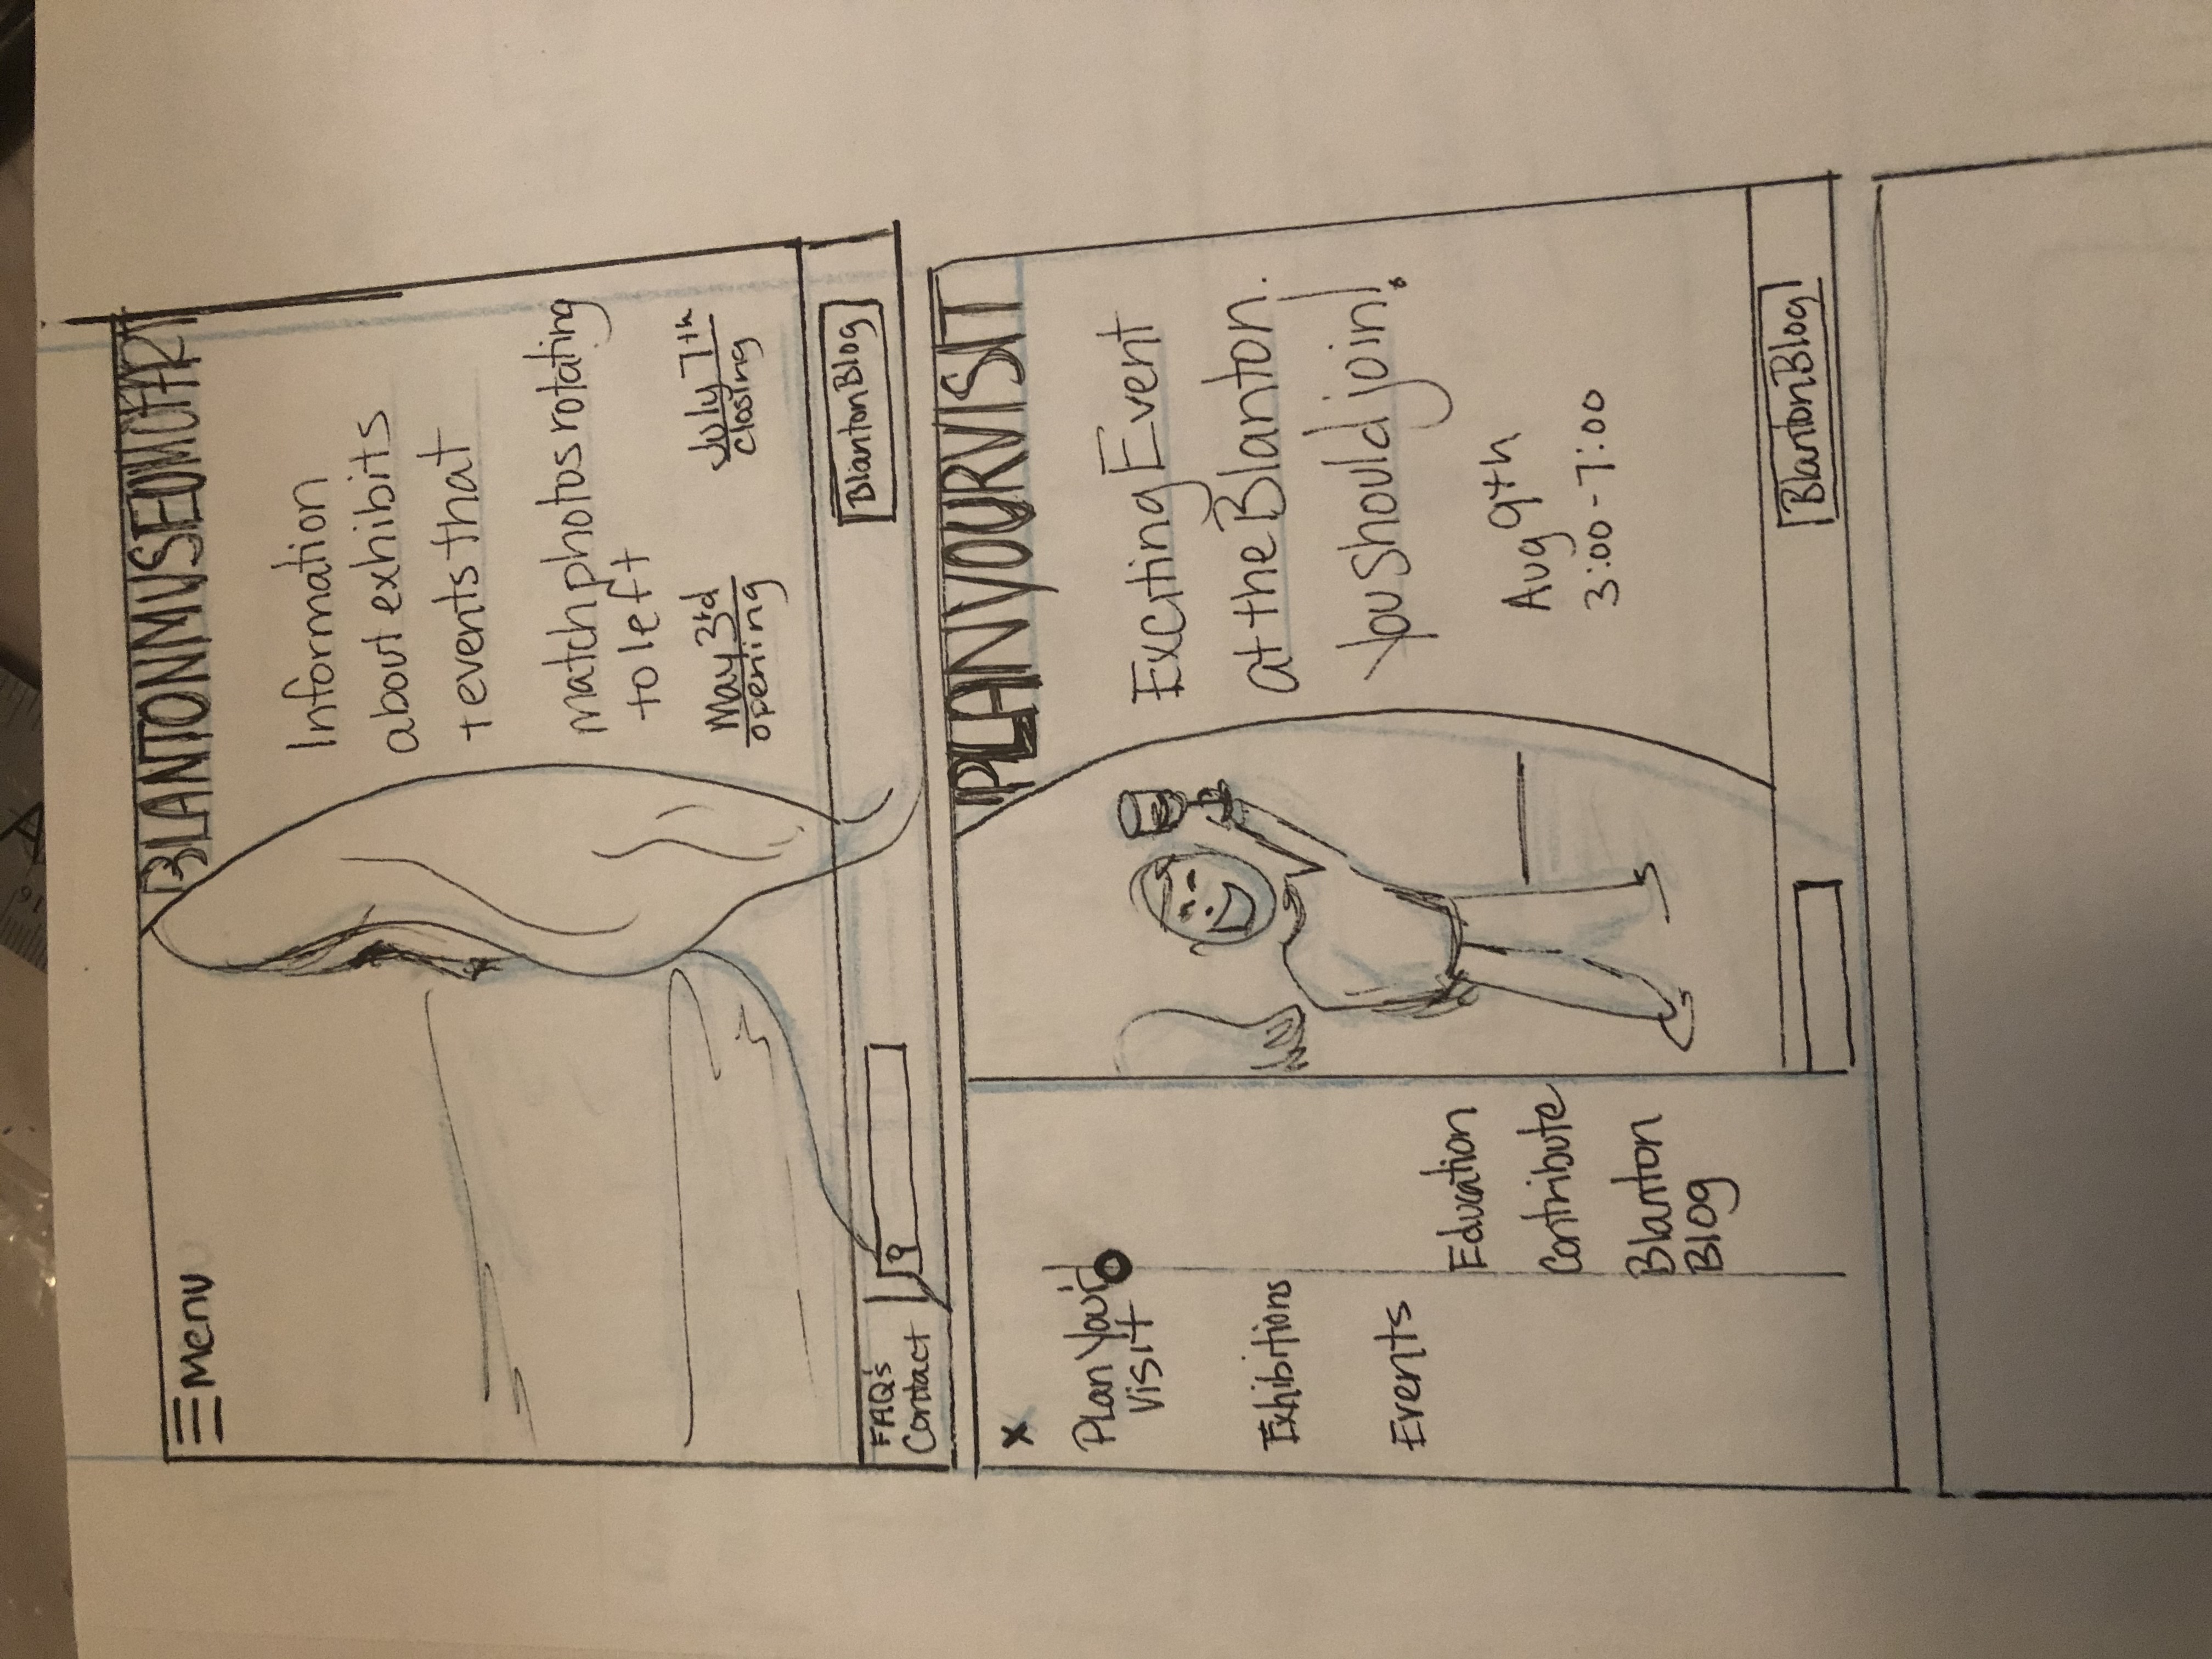 Menu
BLANTONMUSEUMOFART
Information
about exhibits
+ events that
match photos rotating
to left
May 3rd
opening
July 7th
closing
FAQ's
Contact
Blanton Blog
X
PLANYOURVISIT
Plan Your
Visit
Exhibitions
Events
Education
Contribute
Blanton
Blog
Exciting Event
at the Blanton.
You should join!
Aug 9th
3:00-7:00
Blanton Blog